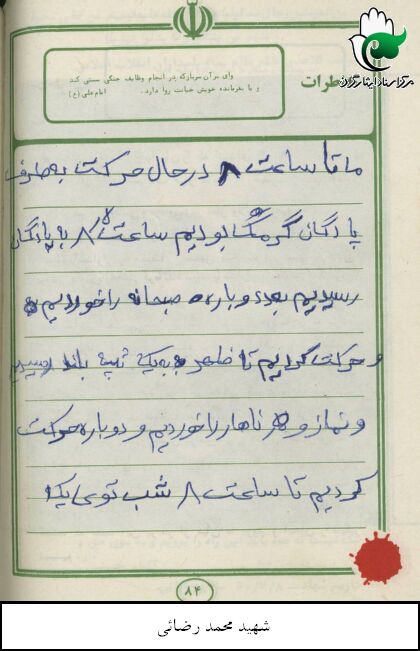 مرکز اسناد ایثارگران
خاطرات
وای بر آن سربازیکه در انجام وظایف جنگی سستی کند
و با بفرمانده خویش خیانت روا دارد. امام علی (ع)
ما تا ساعت ۸ در حال حرکت به طرف
پادگان گرمک بودیم ساعت ۸ به پادگان
رسیدیم بعد دوباره صبحانه را خوردیم
و حرکت کردیم تا ظهر به یک تپه بلند رسیدیم
و نماز و ناهار را خوردیم و دوباره حرکت
کردیم تا ساعت ۸ شب توی یک
۸۴
شهید محمد رضائی